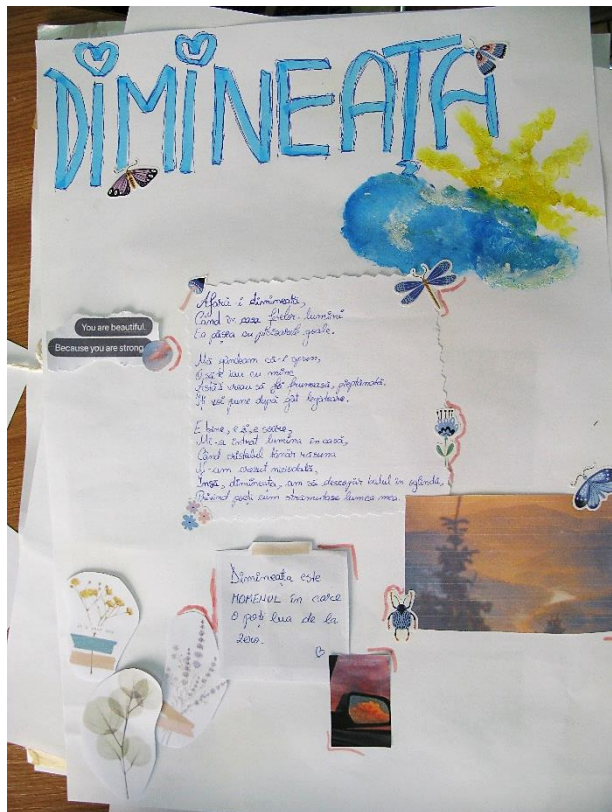 DIMINEAȚA
You are beautiful.
Because you are strong
Afară-i dimineață,
Când în casa fetelor lumini
Ea păsea cu picioarele goale.
Mă gândeam că-i spun,
O să-l iau cu mine
Astăzi vreau să fii frumoasă, pieptănată.
Îți voi pune după gât
E bine, e zi, e soare,
Mi-a intrat lumina în casă,
Când cristalul tânăr răsuna
Și-am crezut niciodată,
Însă, dimineața, am să descopăr balul în oglindă,
Privind peții cum lumea mea.
Dimineața este
MOMENUL în care
o poți lua de la
zero.